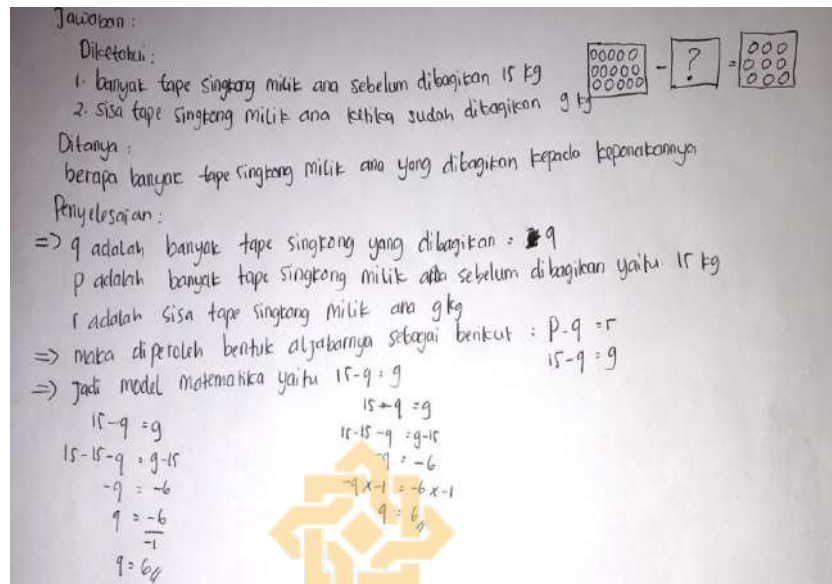 Jawaban :
Diketahui :
1. banyak tape singkong milik ana sebelum dibagikan 15 kg
2. sisa tape singkong milik ana ketika sudah dibagikan 9 kg
- ? =
Ditanya :
berapa banyak tape singkong milik ana yang dibagikan kepada keponakannya
Penyelesaian :
=> q adalah banyak tape singkong yang dibagikan : q
p adalah banyak tape singkong milik ana sebelum dibagikan yaitu 15 kg
r adalah sisa tape singkong milik ana 9 kg
=> maka diperoleh bentuk aljabarnya sebagai berikut : p - q = r
15 - q = 9
=> Jadi model matematika yaitu 15 - q = 9
15 - q = 9
15 - 15 - q = 9 - 15
-q = -6
q = -6
-1
q = 6//
15 - q = 9
15 - 15 - q = 9 - 15
-q = -6
-q x -1 = -6 x -1
q = 6//